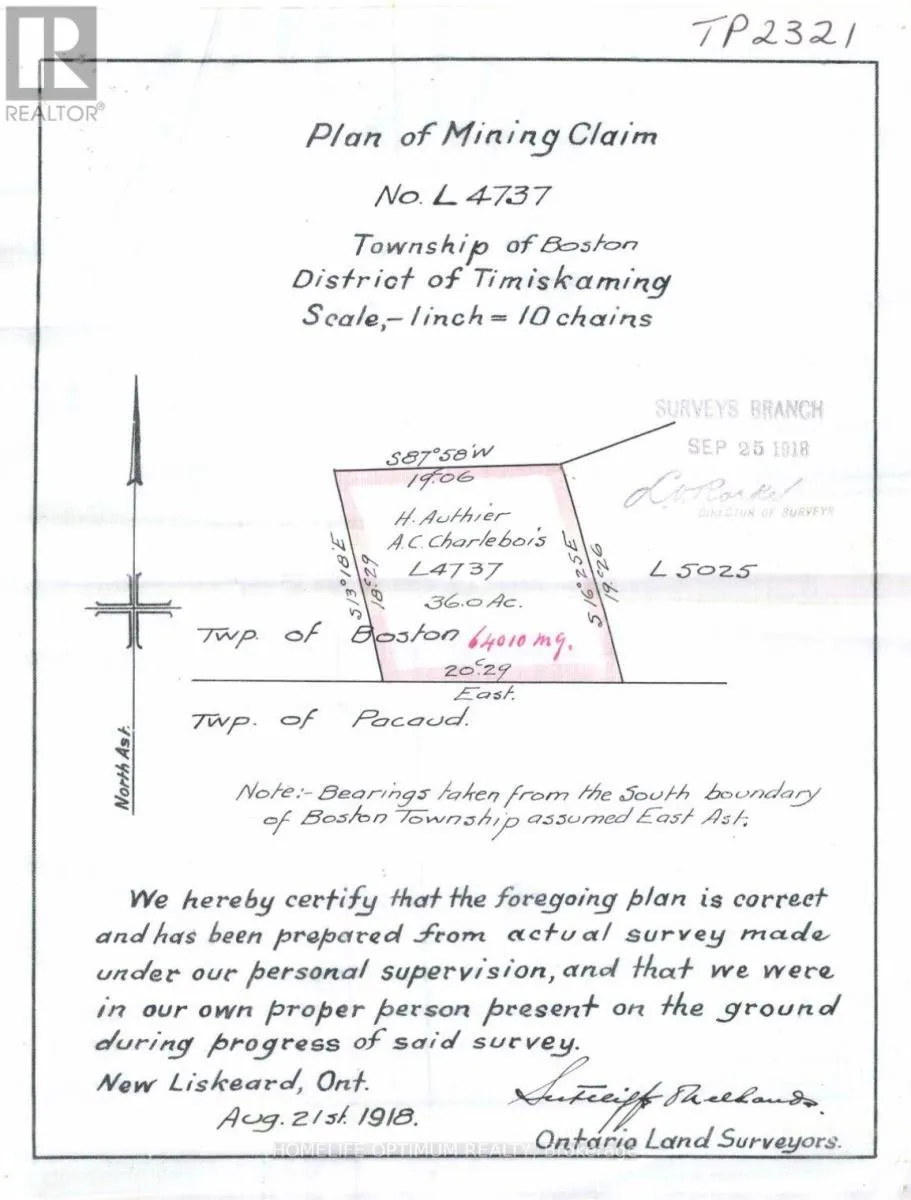 TP2321
REALTOR®
Plan of Mining Claim
No. L 4737
Township of Boston
District of Timiskaming
Scale,- 1 inch = 10 chains
SURVEYS BRANCH
SEP 25 1918
DIRECTOR OF SURVEYS
S87°58'W
19.06
H. Authier
A.C. Charlebois
L4737
36.0 Ac.
S13°18'E
18.29
S16°25'E
19.26
L5025
Twp. of Boston
64010 mg.
20.29
East.
Twp. of Pacaud.
North Ast.
Note:- Bearings taken from the South boundary
of Boston Township assumed East Ast.
We hereby certify that the foregoing plan is correct
and has been prepared from actual survey made
under our personal supervision, and that we were
in our own proper person present on the ground
during progress of said survey.
New Liskeard, Ont.
Aug. 21st. 1918.
Ontario Land Surveyors.
HOMELIFE OPTIMUM REALTY, Brokerage